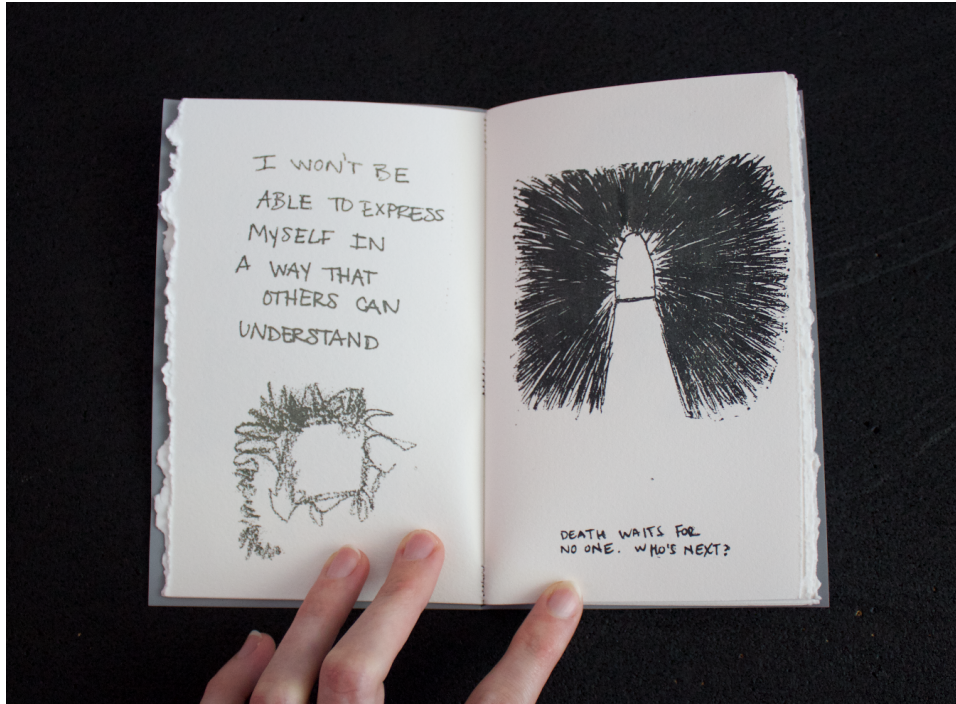 I WON'T BE
ABLE TO EXPRESS
MYSELF IN
A WAY THAT
OTHERS CAN
UNDERSTAND
DEATH WAITS FOR
NO ONE. WHO'S NEXT?